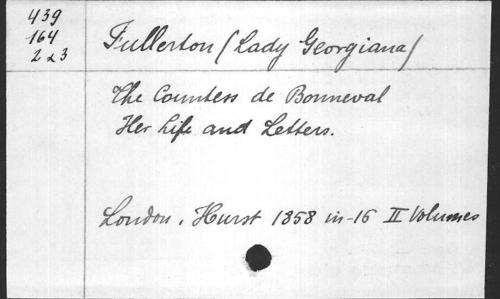 439
164
2 & 3
Fullerton (Lady Georgiana)
The Countess de Bonneval
Her Life and Letters.
London, Hurst 1858 in-16 II Volumes